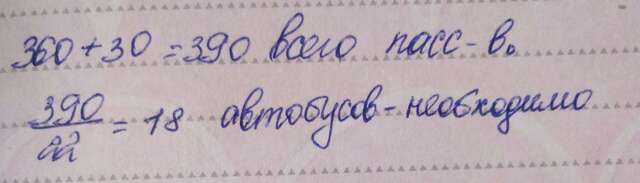 360+30=390 всего пасс-в.
390/22 = 18 автобусов-необходимо